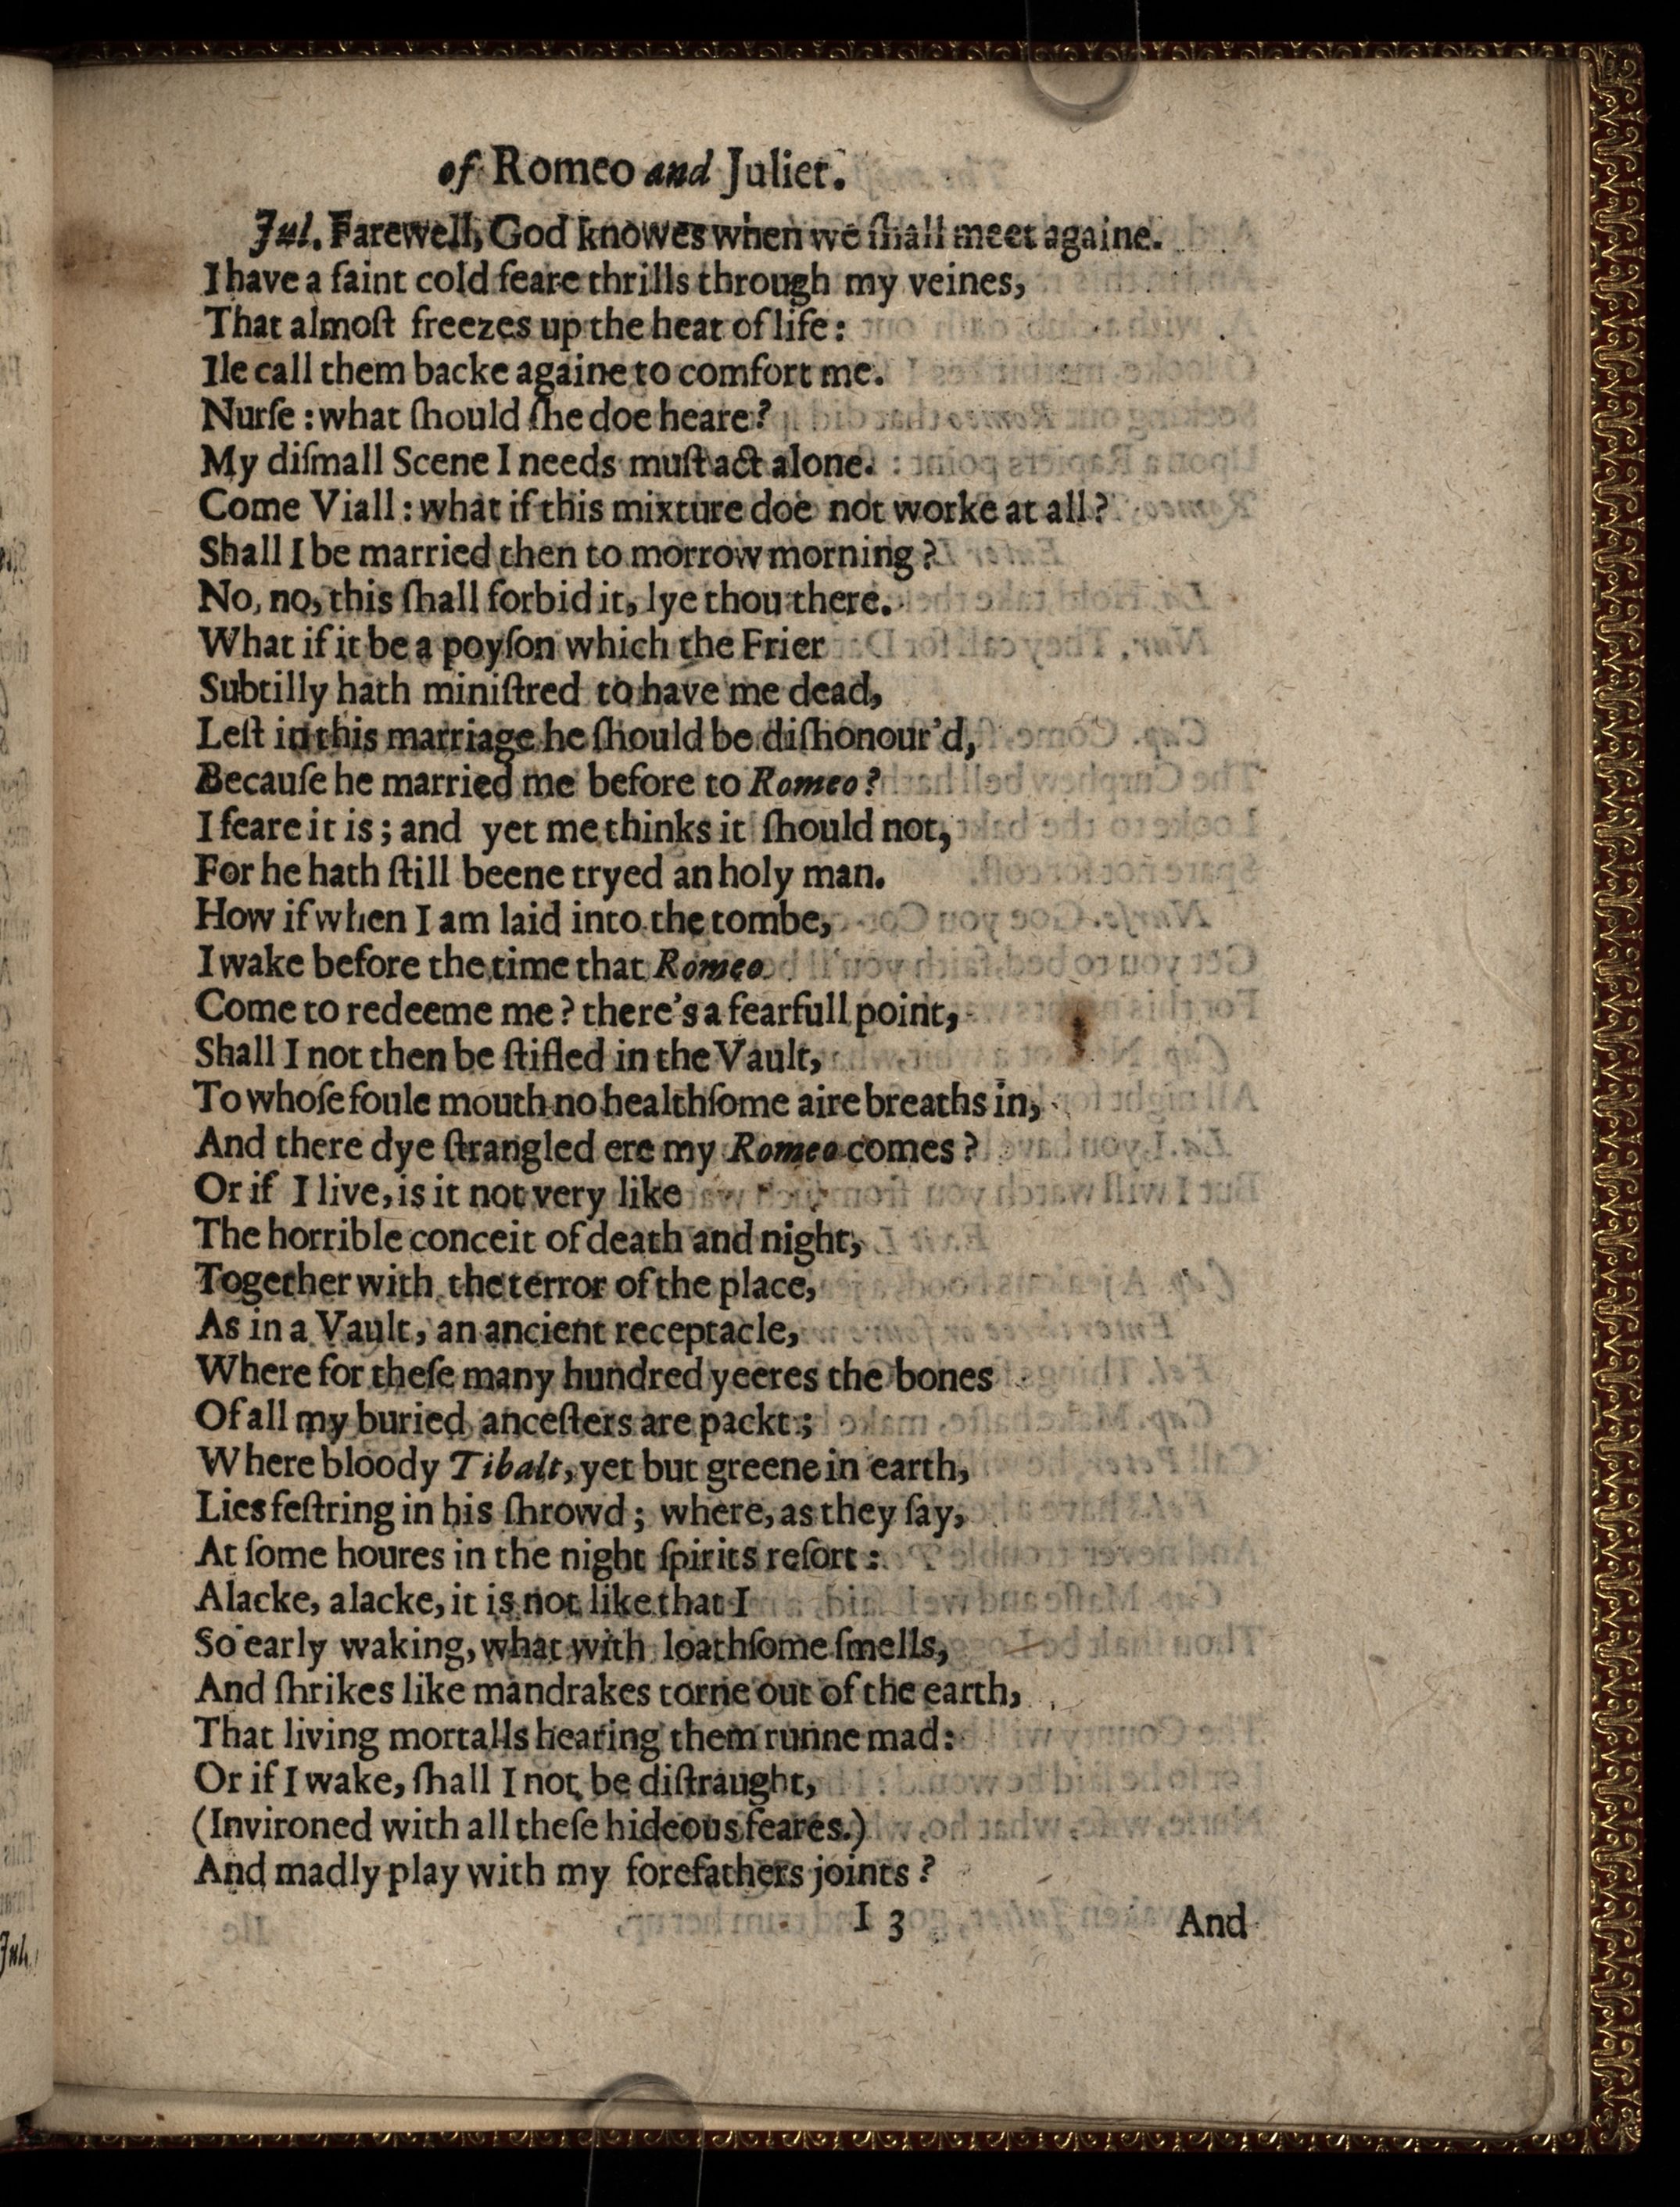 of Romeo and Juliet.
Jul. Farewell, God knowes when we ſhall meet againe.
I have a faint cold feare thrills through my veines,
That almoſt freezes up the heat of life:
Ile call them backe againe to comfort me.
Nurſe: what ſhould ſhe doe heare?
My diſmall Scene I needs muſt act alone.
Come Viall: what if this mixture doe not worke at all?
Shall I be married then to morrow morning?
No, no, this ſhall forbid it, lye thou there.
What if it be a poyſon which the Frier
Subtilly hath miniſtred to have me dead,
Leſt in this marriage he ſhould be diſhonour'd,
Becauſe he married me before to Romeo?
I feare it is; and yet me thinks it ſhould not,
For he hath ſtill beene tryed an holy man.
How if when I am laid into the tombe,
I wake before the time that Romeo
Come to redeeme me? there's a fearfull point,
Shall I not then be ſtifled in the Vault,
To whoſe foule mouth no healthſome aire breaths in,
And there dye ſtrangled ere my Romeo comes?
Or if I live, is it not very like
The horrible conceit of death and night,
Together with the terror of the place,
As in a Vault, an ancient receptacle,
Where for theſe many hundred yeeres the bones
Of all my buried anceſters are packt;
Where bloody Tibalt, yet but greene in earth,
Lies feſtring in his ſhrowd; where, as they ſay,
At ſome houres in the night ſpirits reſort:
Alacke, alacke, it is not like that I
So early waking, what with loathſome ſmells,
And ſhrikes like mandrakes torne out of the earth,
That living mortalls hearing them runne mad:
Or if I wake, ſhall I not be diſtraught,
(Invironed with all theſe hideous feares.)
And madly play with my forefathers joints?
I 3 And
Jul.